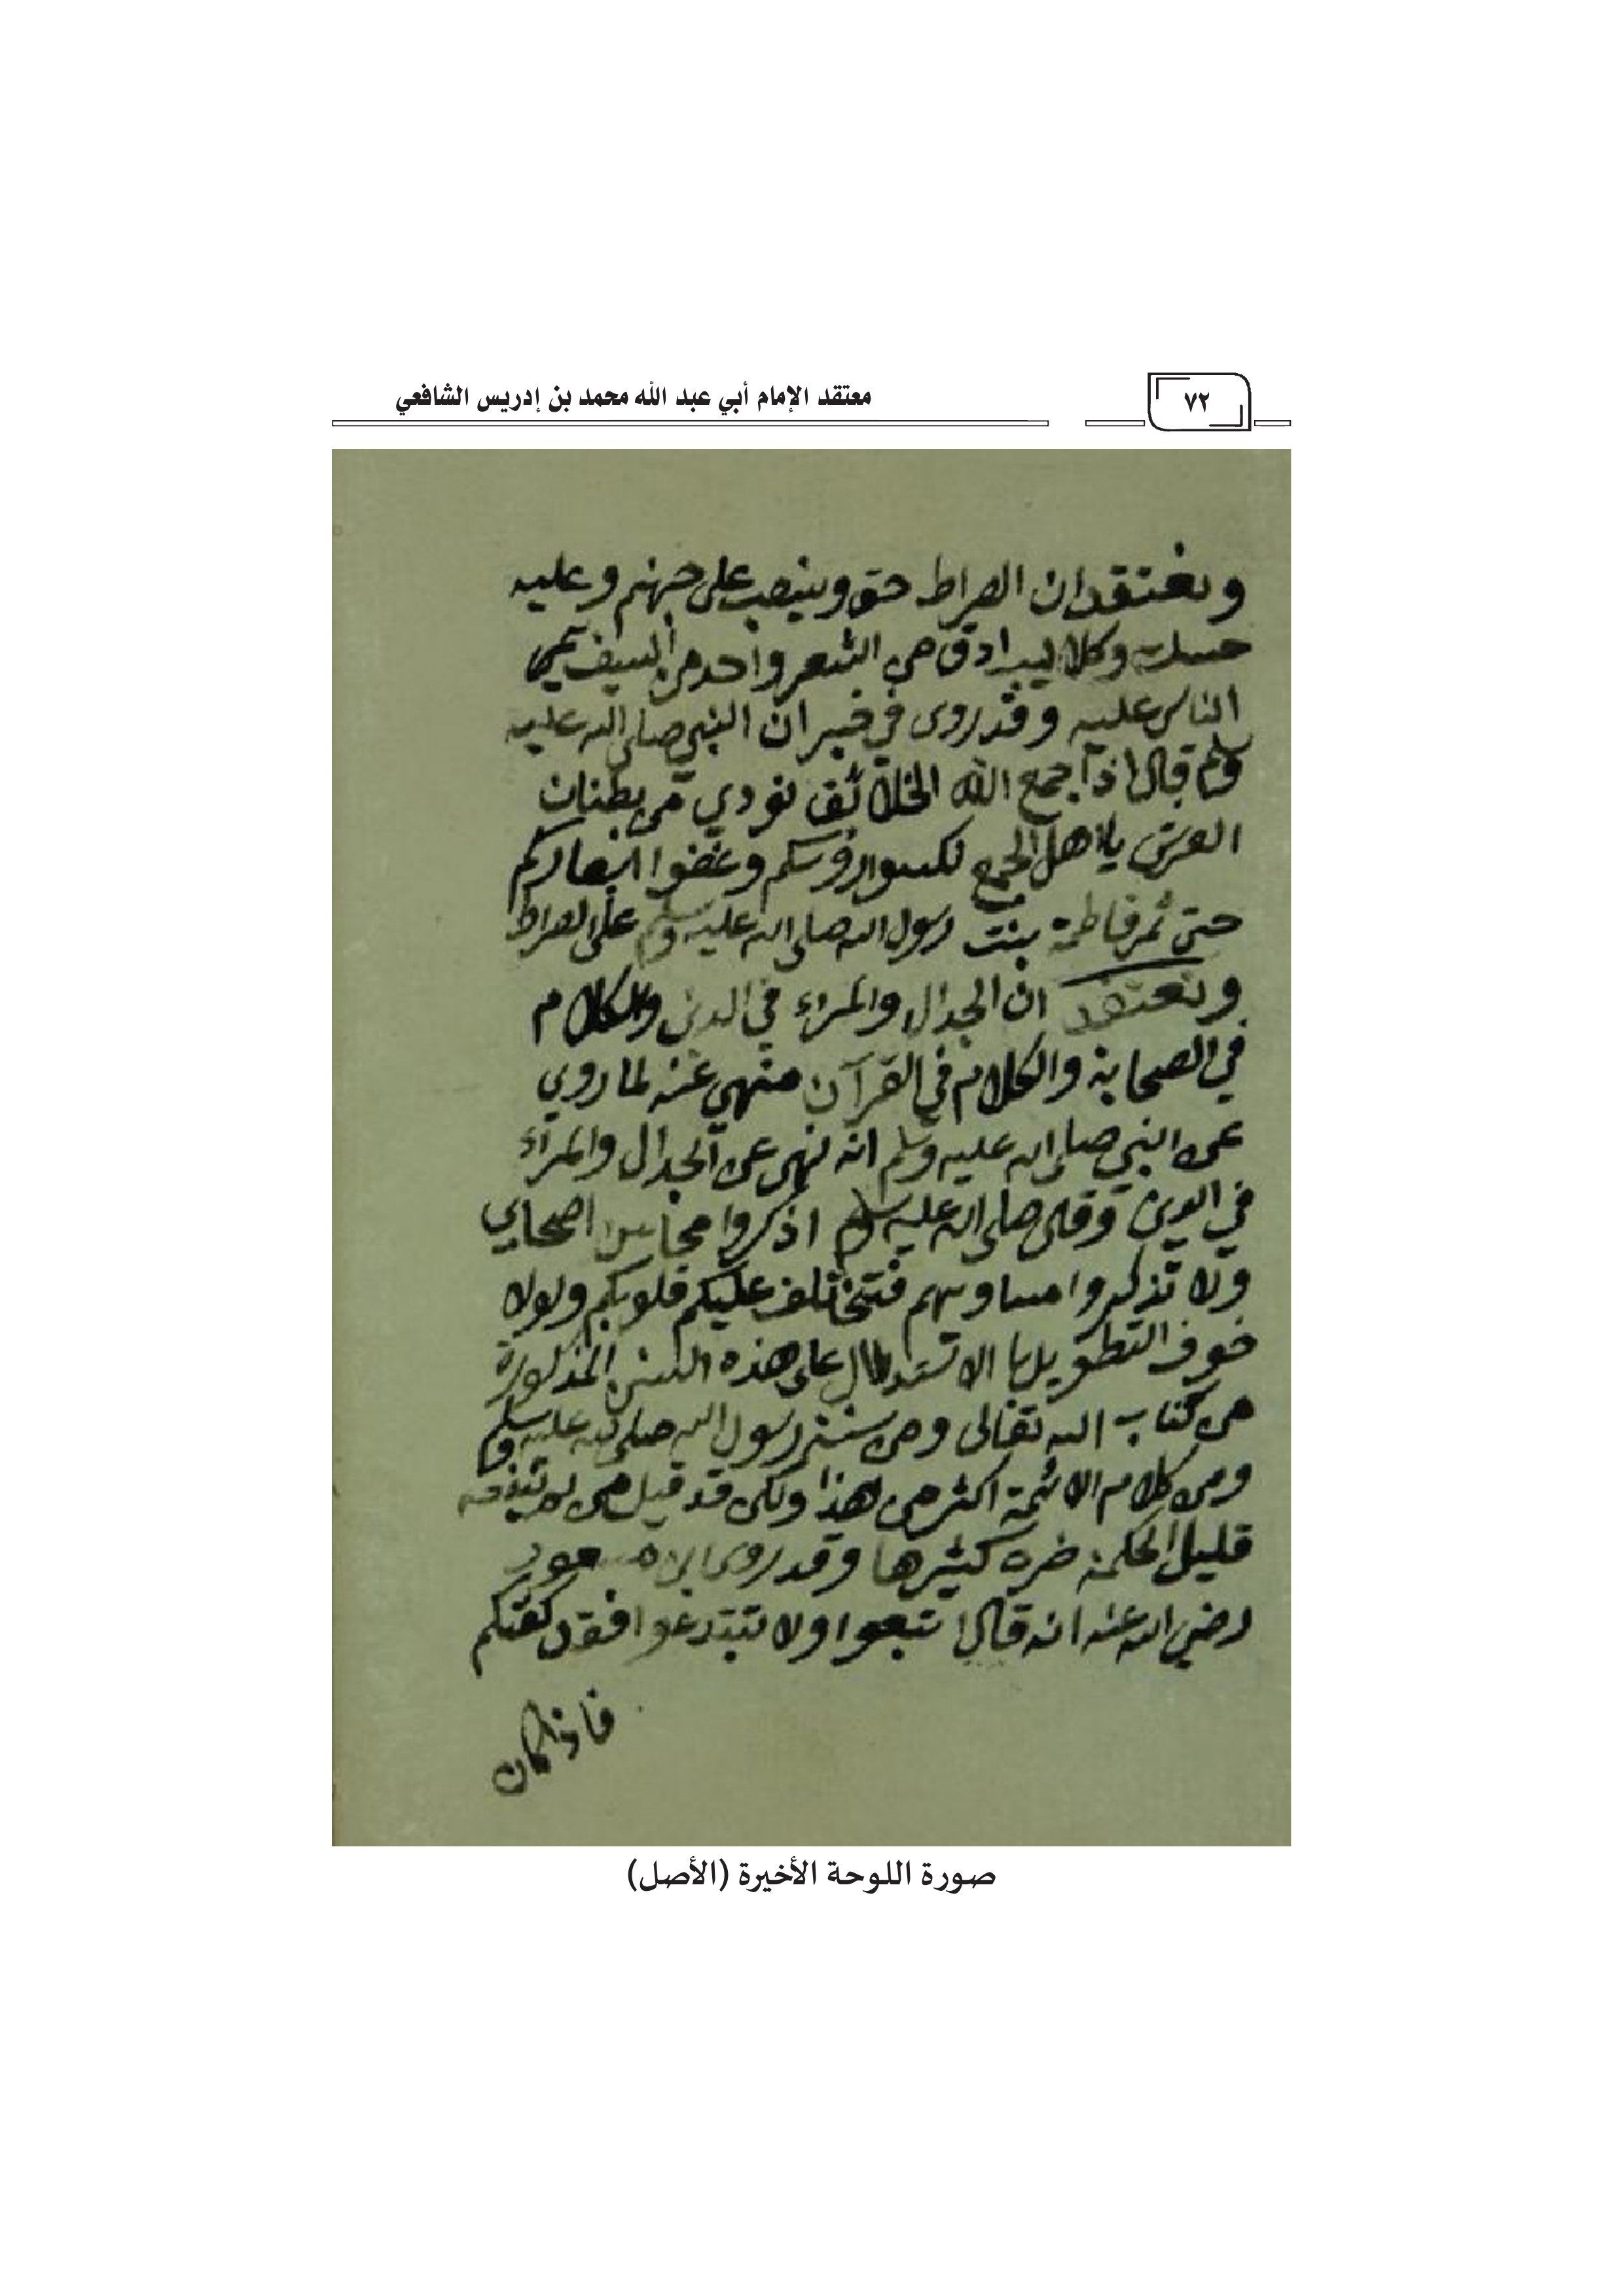 ٧٢
معتقد الإمام أبي عبد الله محمد بن إدريس الشافعي
ونعتقد ان الصراط حق وينصب على جهنم وعليه
حسك وكلاليب ادق من الشعر واحد من السيف
الناس عليه وقد روى في خبر ان النبي صلى الله عليه
وسلم قال اذا جمع الله الخلائق نودي من بطنان
العرش يا اهل الجمع نكسوا رؤسكم وغضوا ابصاركم
حتى تمر فاطمة بنت رسول الله صلى الله عليه وسلم على الصراط
ونعتقد ان الجدال والمراء في الدين والكلام
في الصحابة والكلام في القرآن منهي عنه لما روي
عن النبي صلى الله عليه وسلم انه نهى عن الجدال والمراء
في الدين وقال صلى الله عليه وسلم اذكروا محاسن اصحابي
ولا تذكروا مساوىهم فتختلف عليكم قلوبكم ولولا
خوف التطويل الاستدلال على هذه السنن المذكورة
من كتاب الله تعالى ومن سنن رسول الله صلى الله عليه وسلم
ومن كلام الائمة اكثر من هذا ولكن قد قيل من لم
قليل الحكمة ضره كثيرها وقد روى ابن مسعود
رضي الله عنه انه قال اتبعوا ولا تبتدعوا فقد كفيتكم
فاذا كان
صورة اللوحة الأخيرة (الأصل)